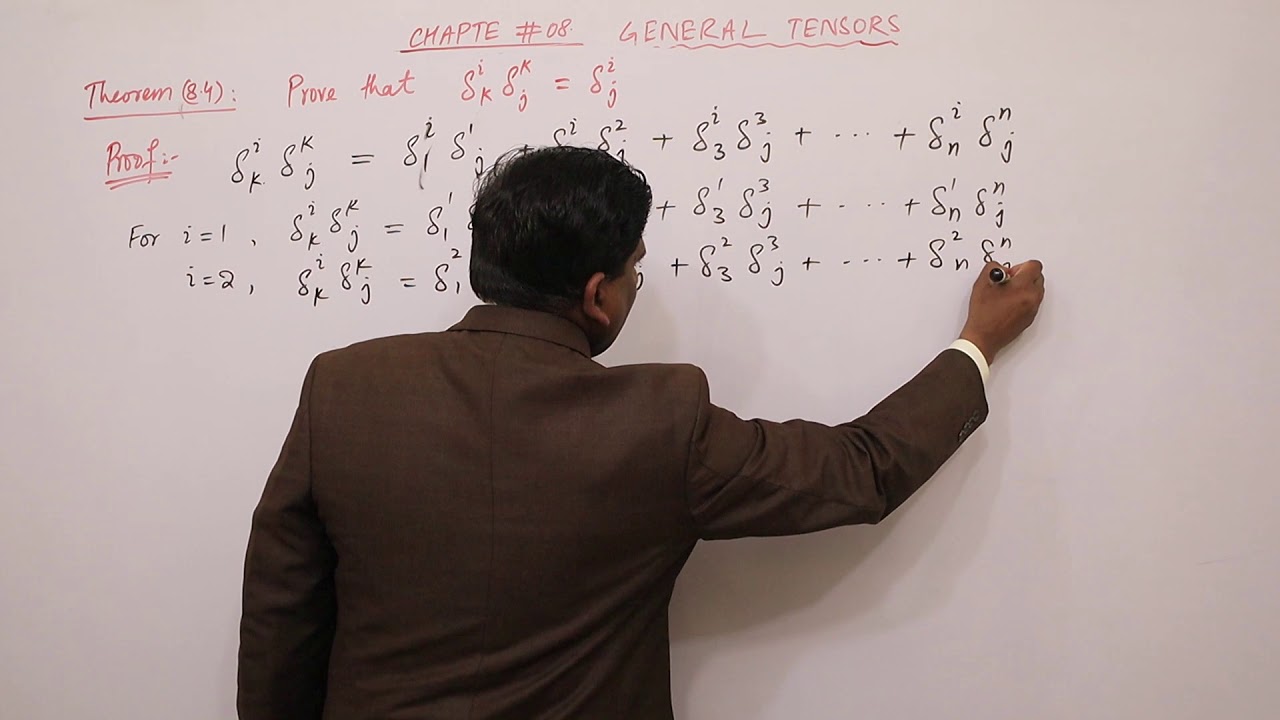 CHAPTE #08. GENERAL TENSORS
Theorem (8.4): Prove that δ^i_k δ^k_j = δ^i_j
Proof:- δ^i_k δ^k_j = δ^i_1 δ^1_j + δ^i δ^2_j + δ^i_3 δ^3_j + ... + δ^i_n δ^n_j
For i=1, δ^i_k δ^k_j = δ^1_1 + δ^1_3 δ^3_j + ... + δ^1_n δ^n_j
i=2, δ^i_k δ^k_j = δ^2_1 j + δ^2_3 δ^3_j + ... + δ^2_n δ^n